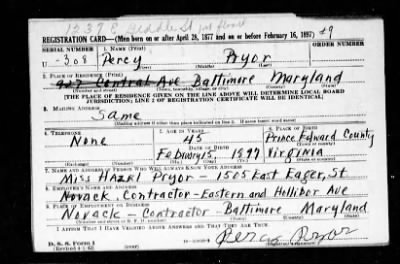 REGISTRATION CARD—(Men born on or after April 28, 1877 and on or before February 16, 1897) 49
SERIAL NUMBER
1. NAME (Print)
ORDER NUMBER
U - 308
Percy Pryor
(First) (Middle) (Last)
2. PLACE OF RESIDENCE (Print)
Central Ave Baltimore Maryland
[THE PLACE OF RESIDENCE GIVEN ON THE LINE ABOVE WILL DETERMINE LOCAL BOARD
JURISDICTION; LINE 2 OF REGISTRATION CERTIFICATE WILL BE IDENTICAL]
3. MAILING ADDRESS
Same
[Mailing address if other than place indicated on line 2. If same insert word same]
4. TELEPHONE
5. AGE IN YEARS
6. PLACE OF BIRTH
None
45
Prince Edward County
DATE OF BIRTH
15, 1897
Virginia
(Exchange) (Number)
(Mo.) (Day) (Yr.)
(State or country)
7. NAME AND ADDRESS OF PERSON WHO WILL ALWAYS KNOW YOUR ADDRESS
Miss Hazel Pryor - 1505 East Eager, St
8. EMPLOYER'S NAME AND ADDRESS
Novack, Contractor - Eastern and Holliber Ave
9. PLACE OF EMPLOYMENT OR BUSINESS
Novack - Contractor - Baltimore Maryland
I AFFIRM THAT I HAVE VERIFIED ABOVE ANSWERS AND THAT THEY ARE TRUE.
D. S. S. Form 1
Percy Pryor